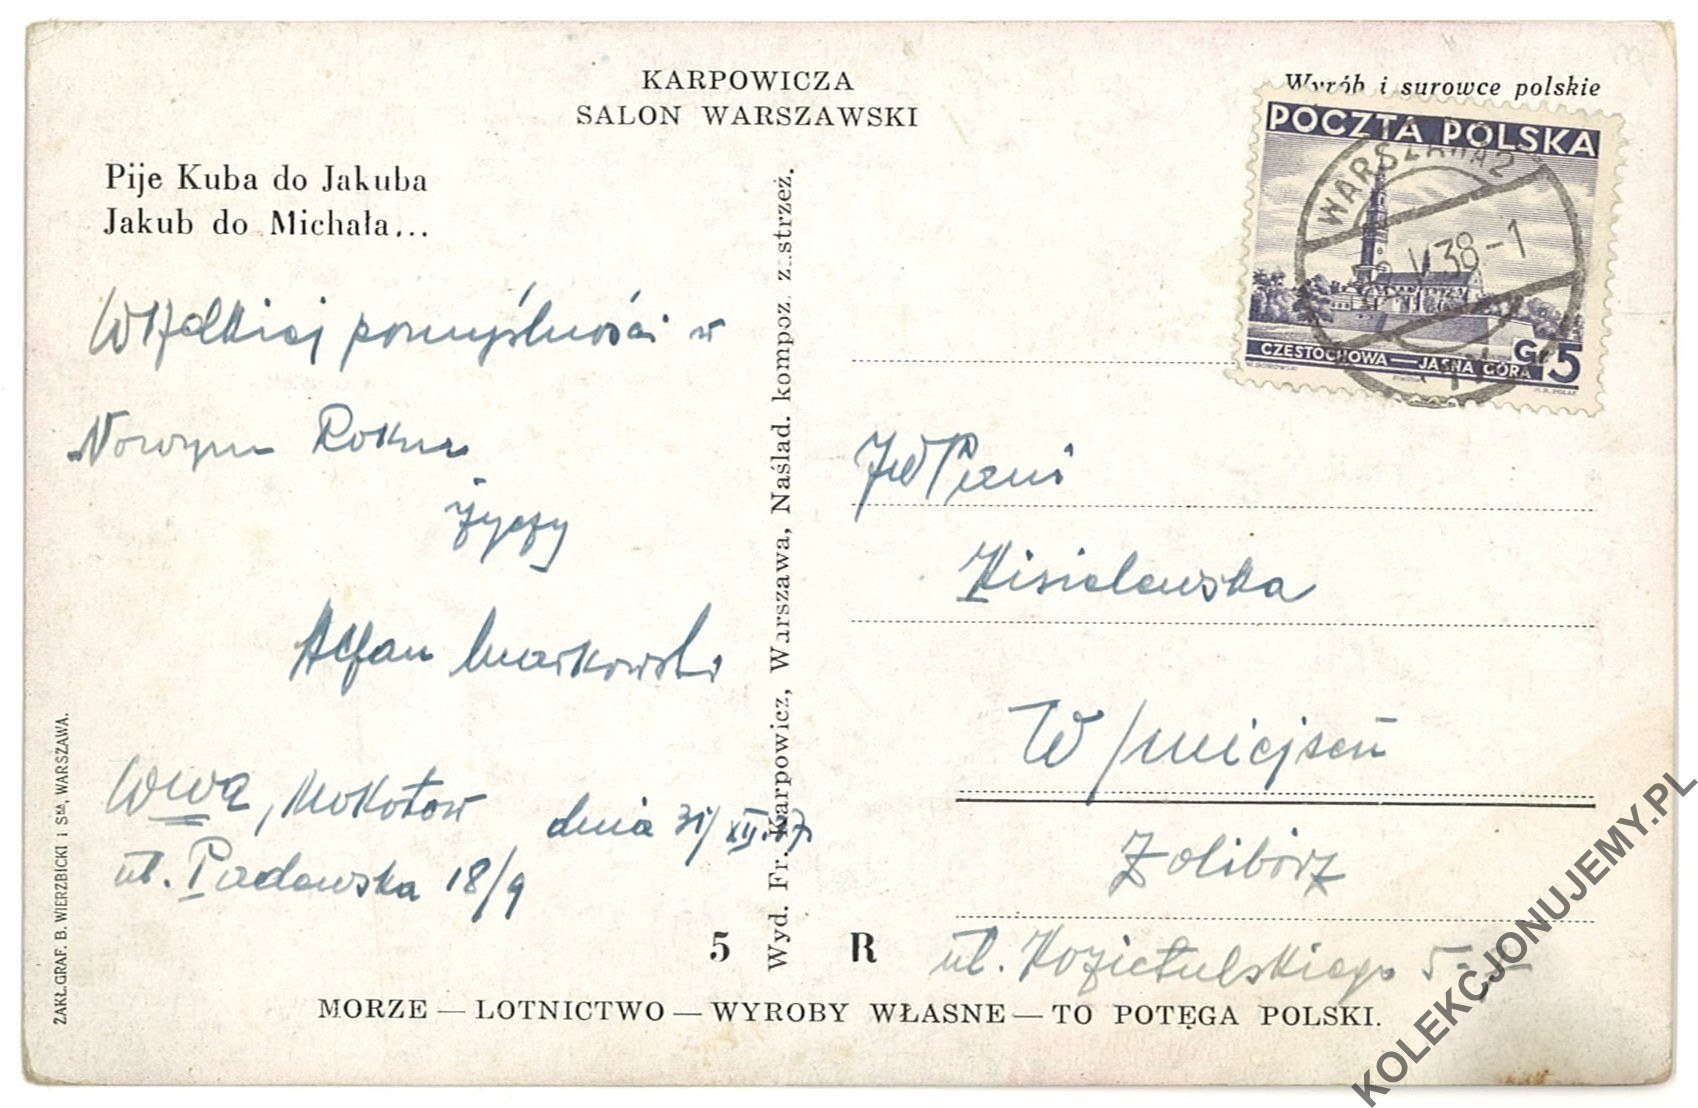 KARPOWICZA
SALON WARSZAWSKI
Wyrób i surowce polskie
Pije Kuba do Jakuba
Jakub do Michała...
POCZTA POLSKA
WARSZAWA 2
38-1
CZĘSTOCHOWA — JASNA GÓRA
Gr 5
Wszelkiej pomyślności w
Nowym Roku
życzy
Stefan Markowski
Wwa, Mokotów dnia 31/XII.37.
ul. Padewska 18/9
Wyd. Fr. Karpowicz, Warszawa, Naślad. kompoz. zastrzeż.
ZAKŁ.GRAF. B. WIERZBICKI i SKA, WARSZAWA.
JWPani
Kisielewska
W/miejscu
Żolibórz
ul. Kozietulskiego 5
5 R
MORZE — LOTNICTWO — WYROBY WŁASNE — TO POTĘGA POLSKI.
KOLEKCJONUJEMY.PL